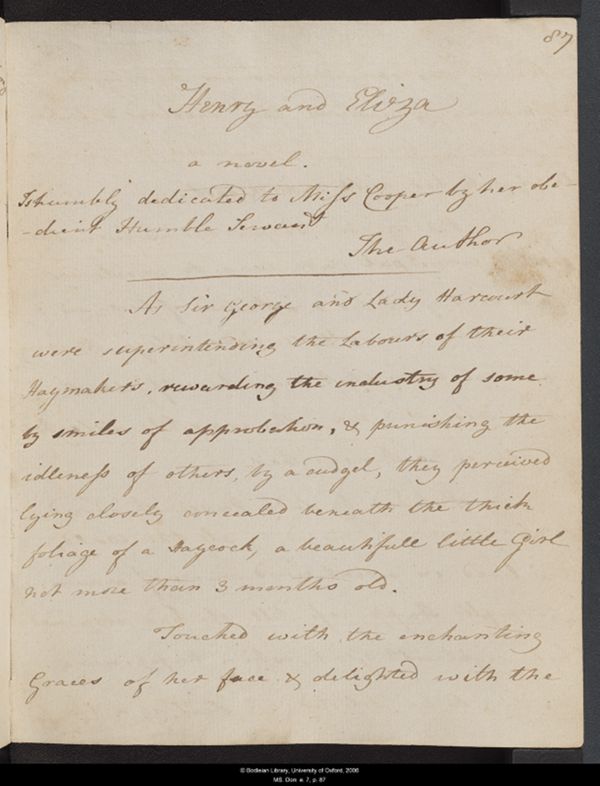 87
Henry and Eliza
a novel.
Is humbly dedicated to Miss Cooper by her obe-
-dient Humble Servant
The Author
As Sir George and Lady Harcourt
were superintending the Labours of their
Haymakers, rewarding the industry of some
by smiles of approbation, & punishing the
idleness of others, by a cudgel, they perceived
lying closely concealed beneath the thick
foliage of a Haycock, a beautifull little Girl
not more than 3 months old.
Touched with the enchanting
Graces of her face & delighted with the
© Bodleian Library, University of Oxford, 2006
MS. Don. e. 7, p. 87